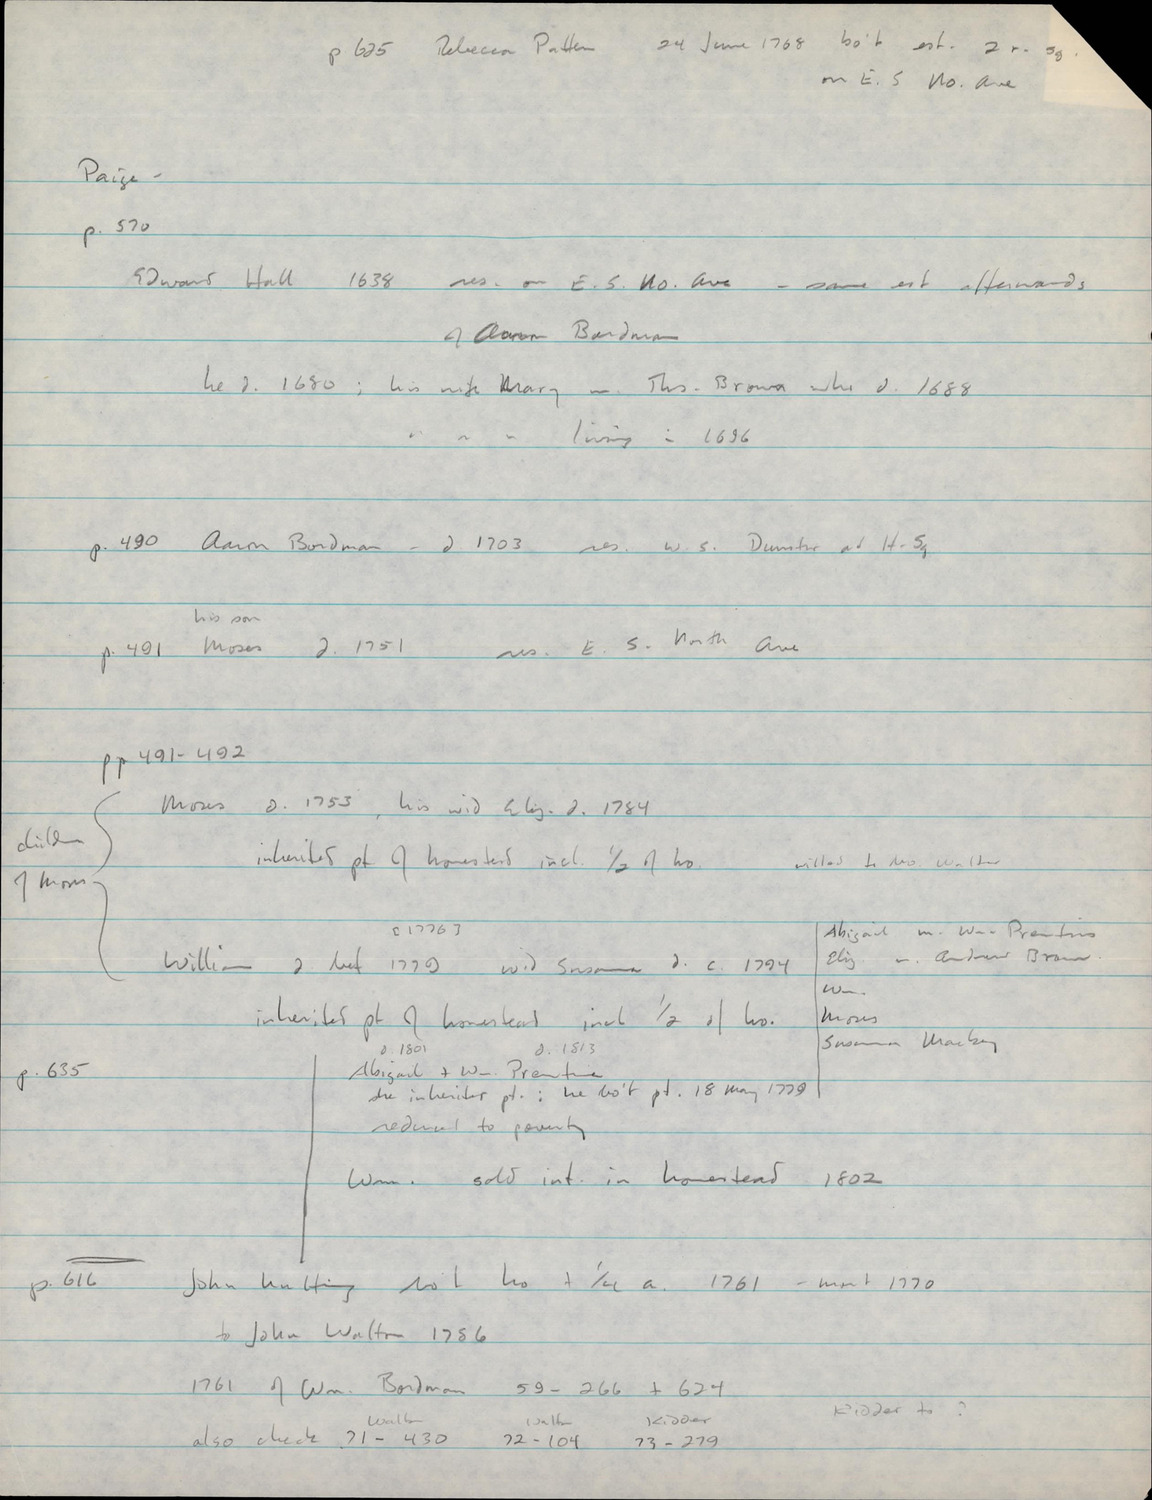 p 625 Rebecca Patten 24 June 1768 bo't est. 2 r. sq.
on E. S No. Ave
Paige -
p. 570
Edward Hall 1638 res. on E. S. No. Ave - same est afterwards
of Aaron Bordman
he d. 1680 ; his wife Mary m. Thos. Brown who d. 1688
" " " living in 1696
p. 490 Aaron Bordman - d 1703 res. w. s. Dunster at H. Sq
his son
p. 491 Moses d. 1751 res. E. S. North Ave
pp 491-492
Moses d. 1753, his wid Eliz. d. 1784
children
inherited pt of homestead incl. 1/2 of ho. willed to
of Moses
c 1776 3
William d. bef 1779 wid Susanna d. c. 1794
Abigail m. Wm. Prentiss
Eliz m. Andrew Brown.
Wm.
Moses
Susanna Mackay
inherited pt of homestead incl 1/2 of ho.
d. 1801 d. 1813
p. 635 Abigail + Wm. Prentiss
she inherited pt. ; he bo't pt. 18 May 1779
reduced to poverty
Wm. sold int. in homestead 1802
p. 616 John Nutting bo't ho + 1/4 a. 1761 - mort 1770
to John Walton 1786
1761 of Wm. Bordman 59 - 266 + 624
Kidder to ?
Walton Walton Kidder
also check 71 - 430 72 - 104 73 - 279